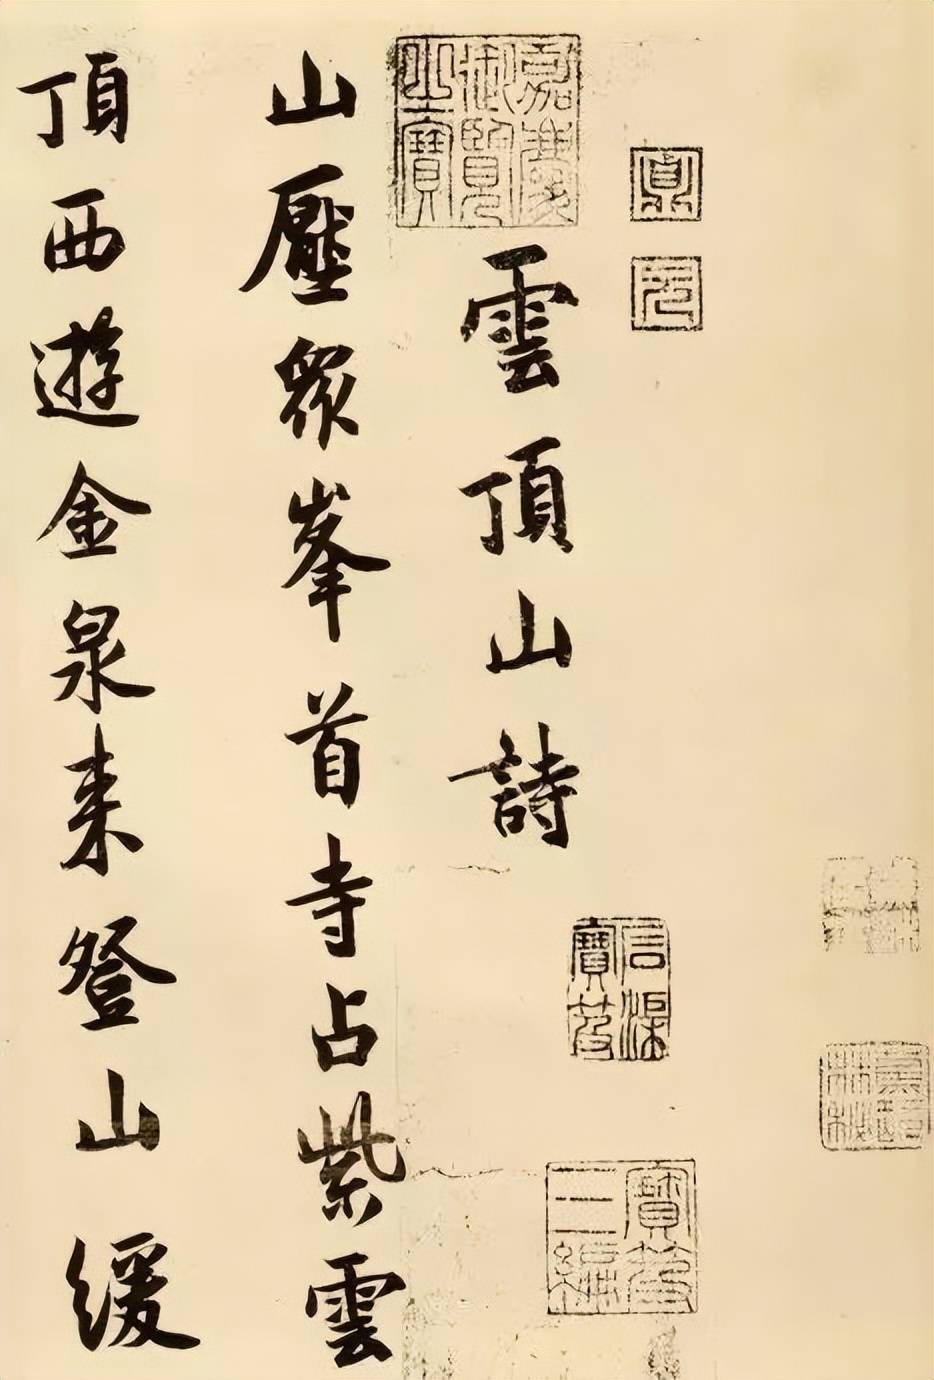 雲頂山詩
石渠寶笈
寶笈三編
嘉慶御覽之寶
山壓眾峯首寺占紫雲
頂西遊金泉来登山緩